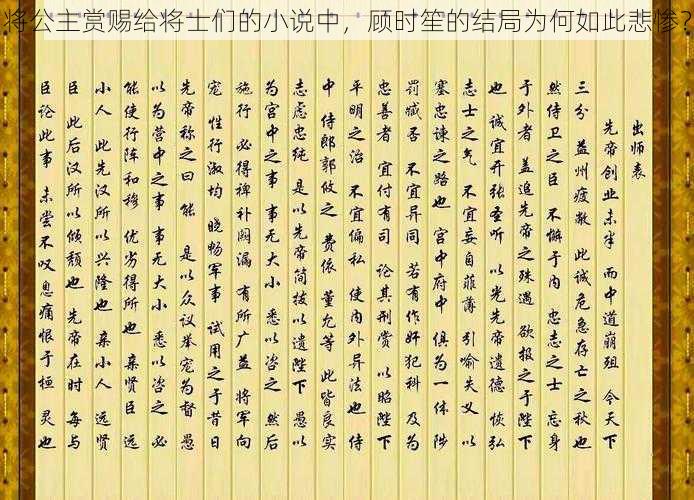 将公主赏赐给将士们的小说中，顾时笙的结局为何如此悲惨？
出师表
先帝创业未半 而中道崩殂 今天下
三分 益州疲敝 此诚危急存亡之秋也
然侍卫之臣 不懈于内 忠志之士 忘身
于外者 盖追先帝之殊遇 欲报之于陛下
也 诚宜开张圣听 以光先帝遗德 恢弘
志士之气 不宜妄自菲薄 引喻失义 以
塞忠谏之路也 宫中府中 俱为一体 陟
罚臧否 不宜异同 若有作奸犯科 及为
忠善者 宜付有司 论其刑赏 以昭陛下
平明之治 不宜偏私 使内外异法也 侍
中 侍郎郭攸之 费依 董允等 此皆良实
志虑忠纯 是以先帝简拔以遗陛下 愚以
为宫中之事 事无大小 悉以咨之 然后
施行 必得裨补阙漏 有所广益 将军向
宠 性行淑均 晓畅军事 试用之于昔日
先帝称之曰 能 是以众议举宠为督 愚
以为营中之事 事无大小 悉以咨之 必
能使行阵和穆 优劣得所也 亲贤臣 远
小人 此先汉所以兴隆也 亲小人 远贤
臣 此后汉所以倾颓也 先帝在时 每与
臣论此事 未尝不叹息痛恨于桓 灵也